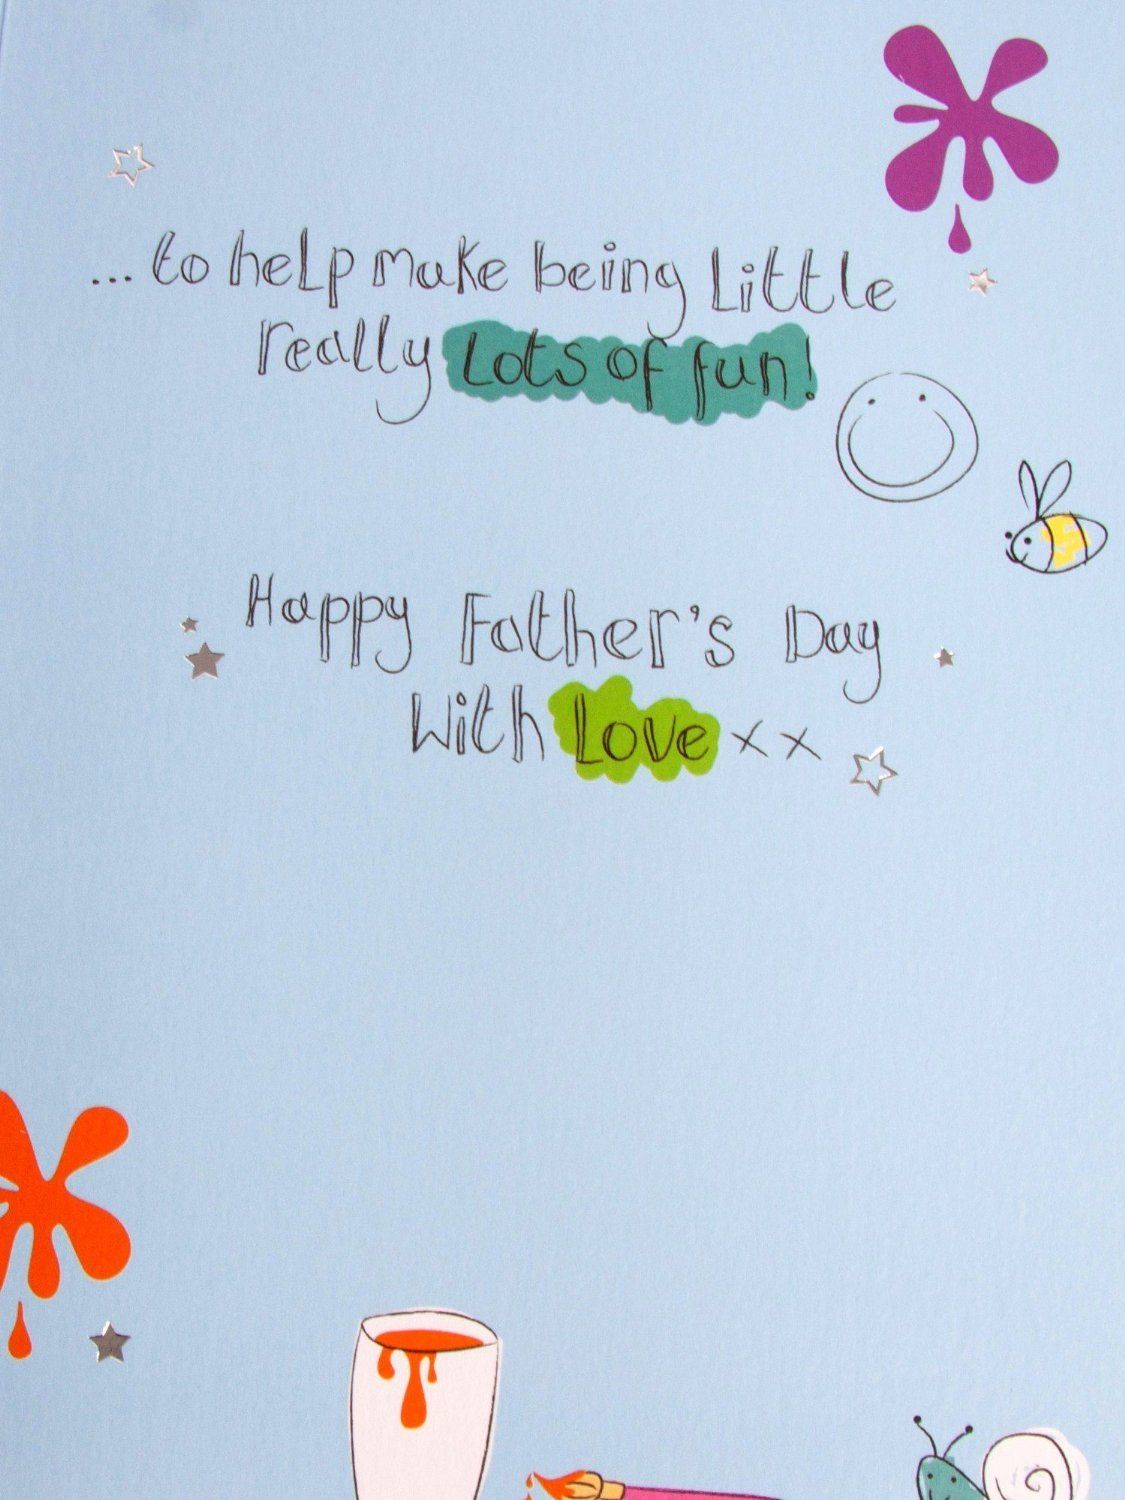 ... to help make being Little
really Lots of fun!
Happy Father's Day
With Love x x